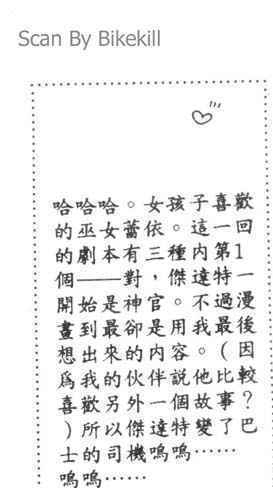 Scan By Bikekill
哈哈哈。女孩子喜歡
的巫女蕾依。這一回
的劇本有三種内第1
個——對，傑達特一
開始是神官。不過漫
畫到最卻是用我最後
想出來的内容。（因
爲我的伙伴說他比較
喜歡另外一個故事？
）所以傑達特變了巴
士的司機嗚嗚……
嗚嗚……